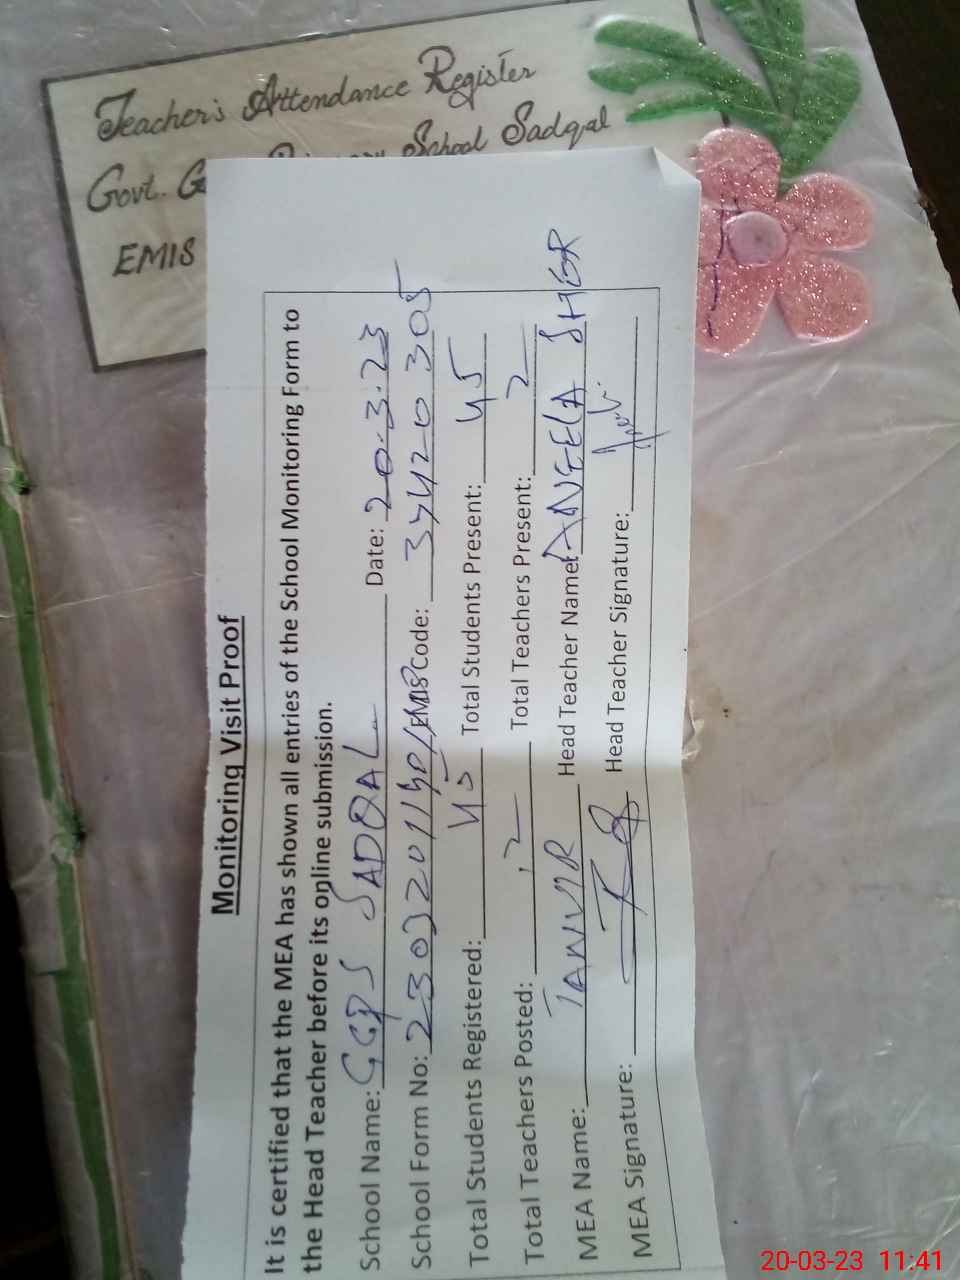 Teacher's Attendance Register
Govt. School Sadqal
EMIS
Monitoring Visit Proof
It is certified that the MEA has shown all entries of the School Monitoring Form to
the Head Teacher before its online submission.
School Name: GGPS SADQAL Date: 20-3-23
School Form No: EMIS Code: 37420305
Total Students Registered: 45 Total Students Present: 45
Total Teachers Posted: 2 Total Teachers Present: 2
MEA Name: TANVIR Head Teacher Name: ANEELA SHER
MEA Signature: Head Teacher Signature:
20-03-23 11:41